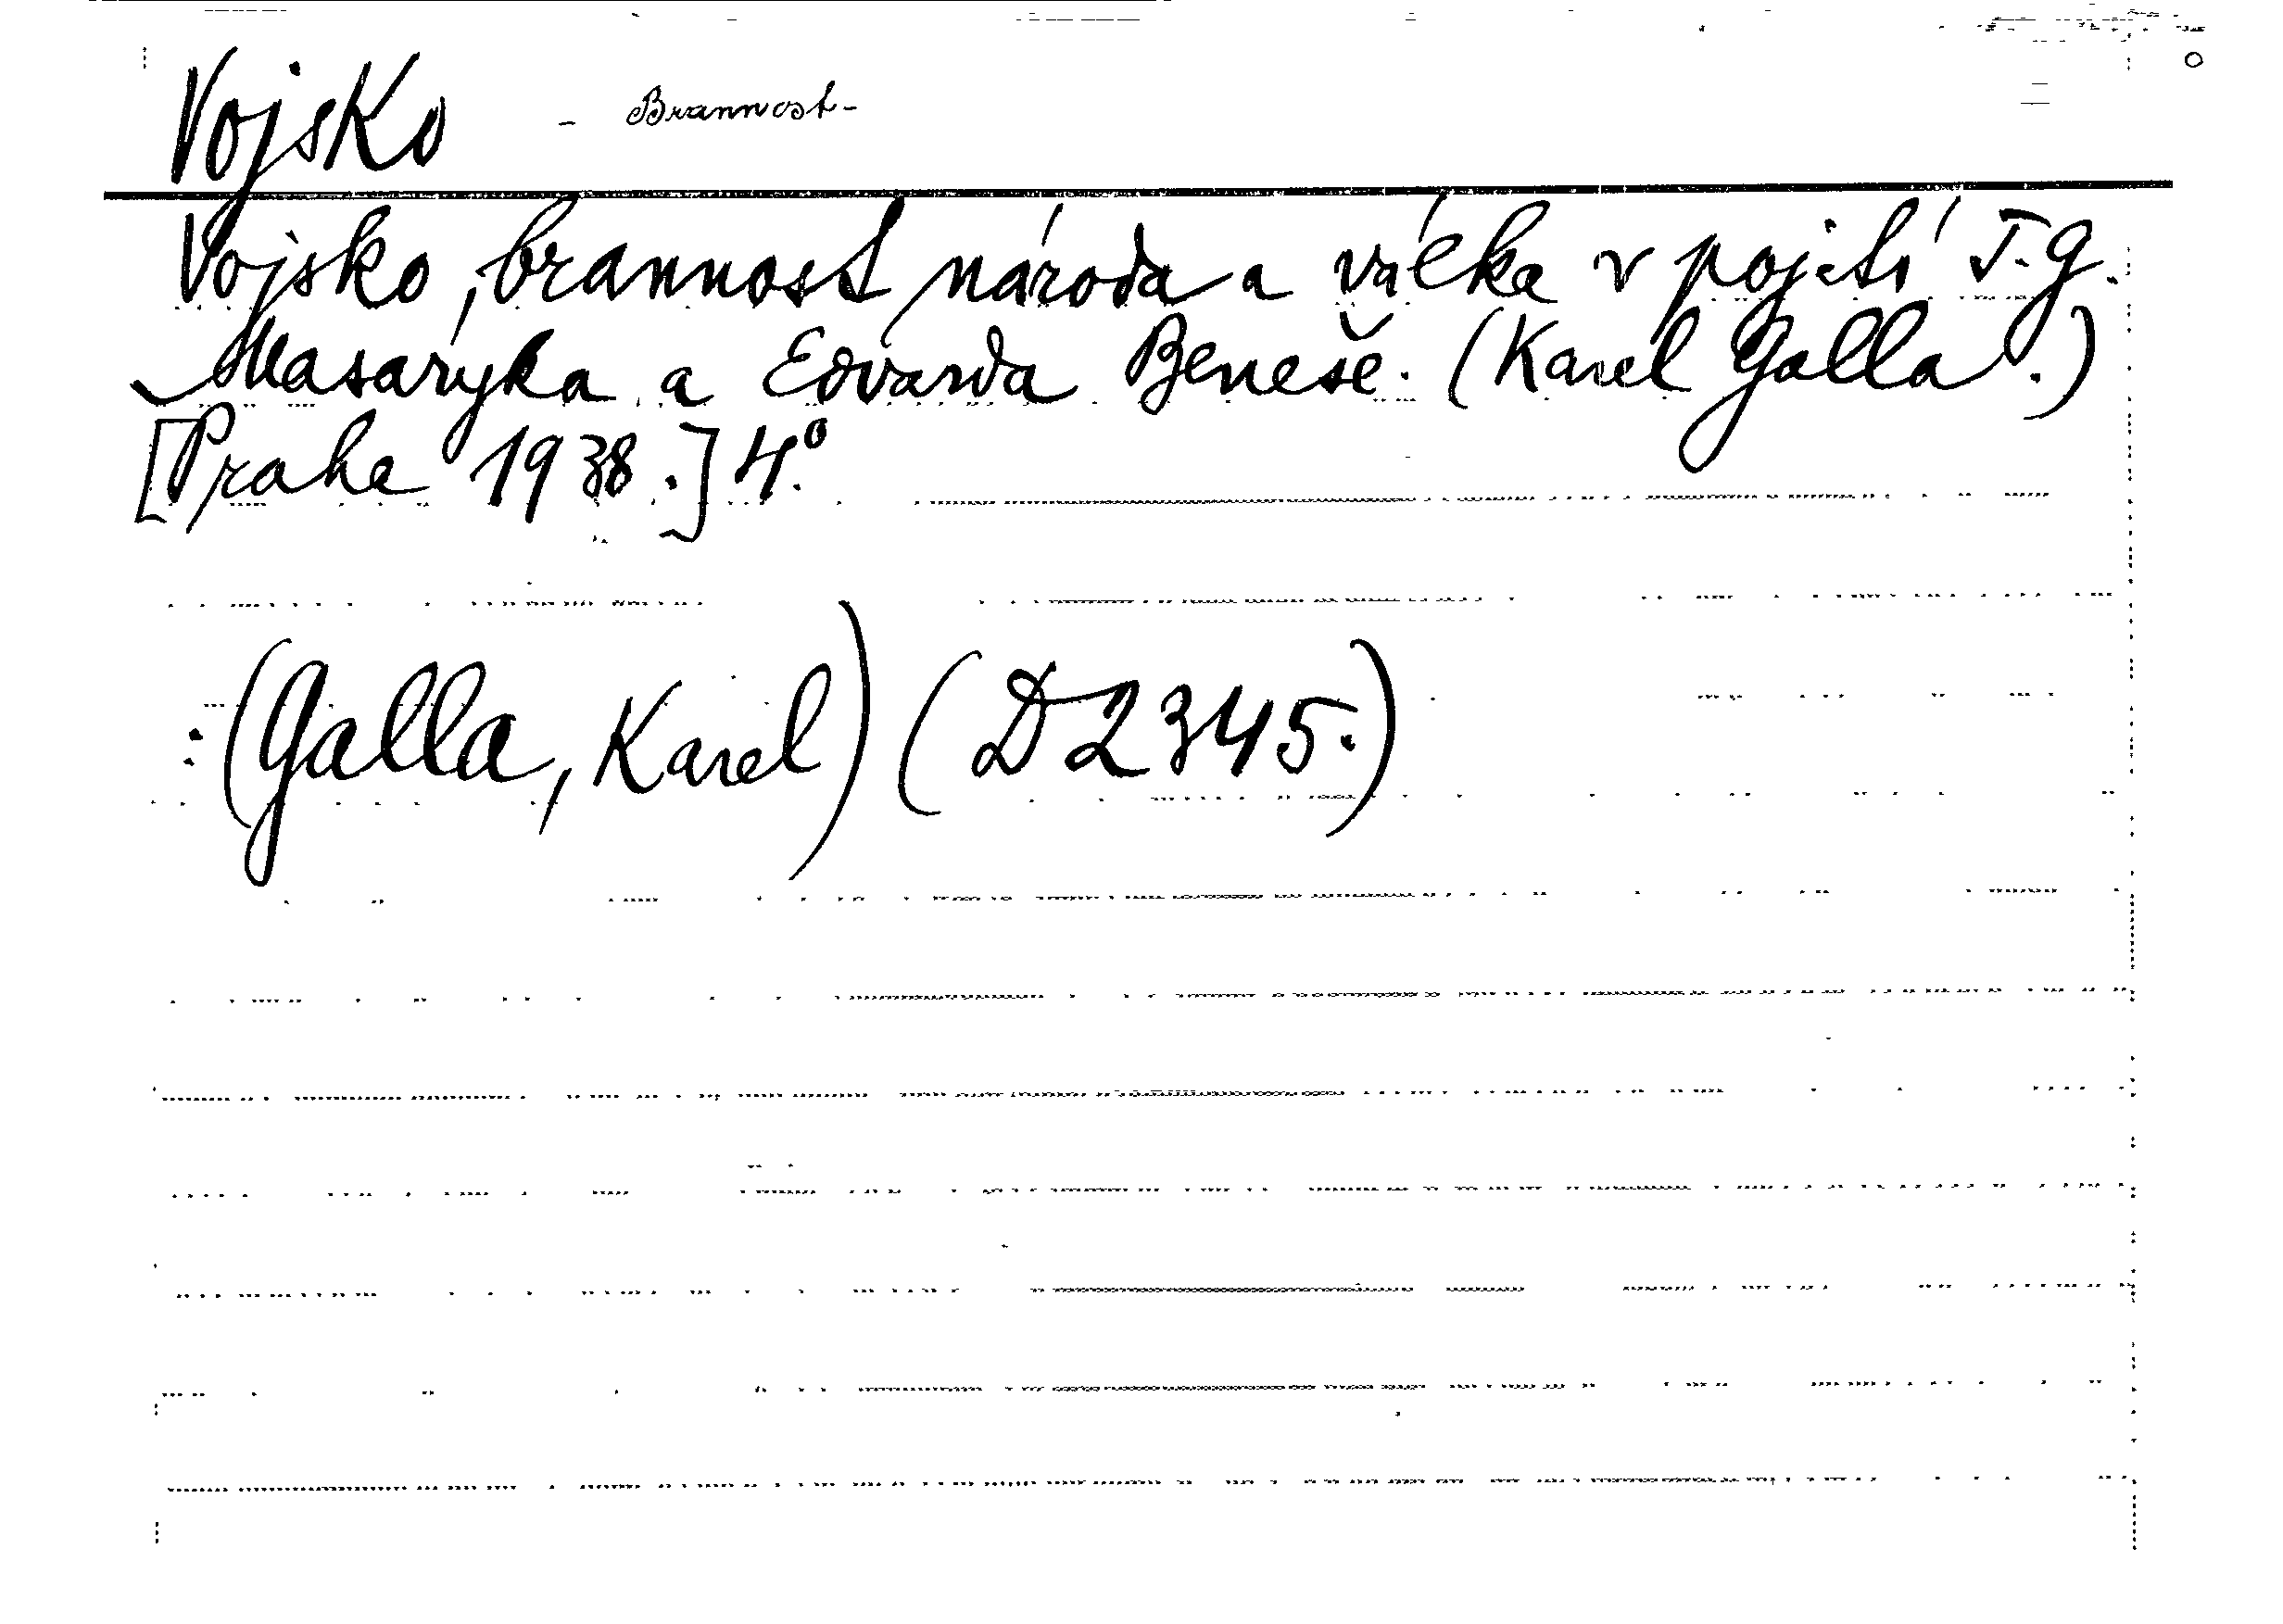 Vojsko - Brannost -
Vojsko, brannost národa a válka v pojetí T. G.
Masaryka a Edvarda Beneše. (Karel Galla.)
[Praha 1938.] 4°.
:(Galla, Karel) (D2345.)